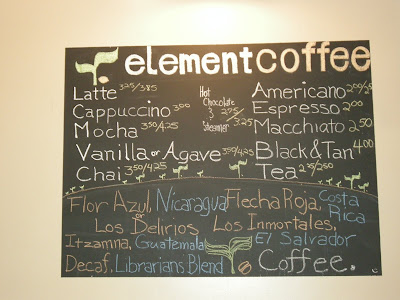 elementcoffee
Latte 3.25/3.85
Cappuccino 3.00
Mocha 3.50/4.25
Vanilla or Agave 3.50/4.25
Chai 3.50/4.25
Hot
Chocolate
& 2.75/3.25
Steamer
Americano 2.00/2.25
Espresso 2.00
Macchiato 2.50
Black & Tan 4.00
Tea 2.25/2.50
Flor Azul, Nicaragua
or
Los Delirios
Flecha Roja, Costa Rica
Los Inmortales, El Salvador
Itzamna, Guatemala
Decaf, Librarians Blend
Coffee.